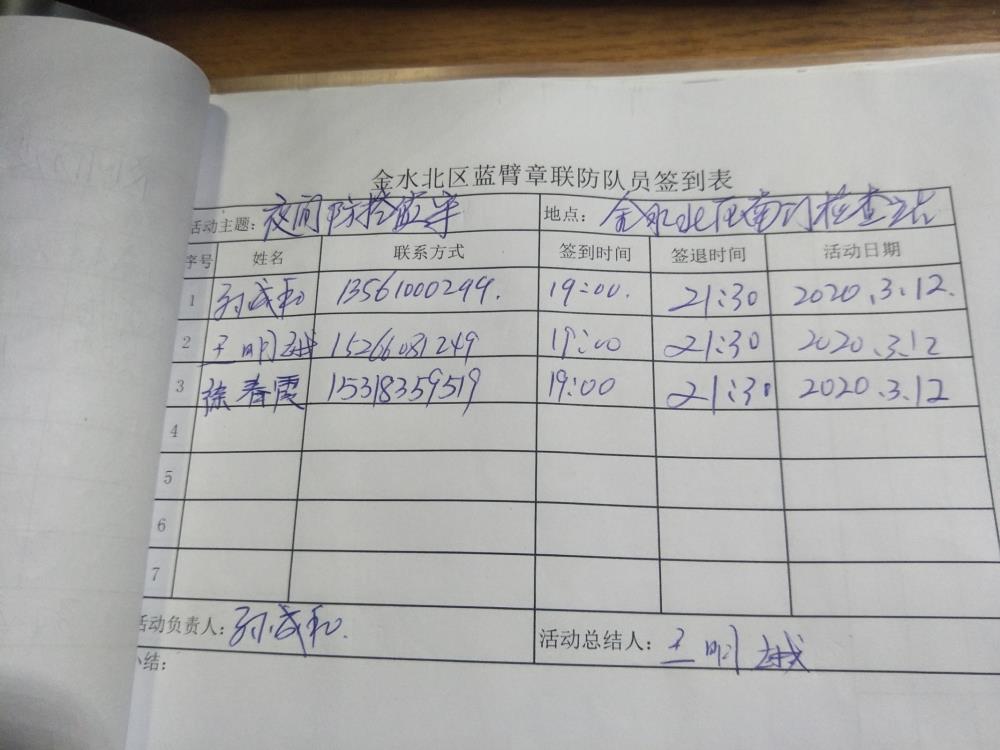 金水北区蓝臂章联防队员签到表
活动主题：夜间防控值守 地点：金水北区南门检查站
序号 姓名 联系方式 签到时间 签退时间 活动日期
1 孙成和 13561000299. 19:00. 21:30 2020.3.12.
2 王明越 15266081249 19:00 21:30 2020.3.12
3 徐春霞 15318359519 19:00 21:30 2020.3.12
4
5
6
7
活动负责人：孙成和.
活动总结人：王明越
小结：